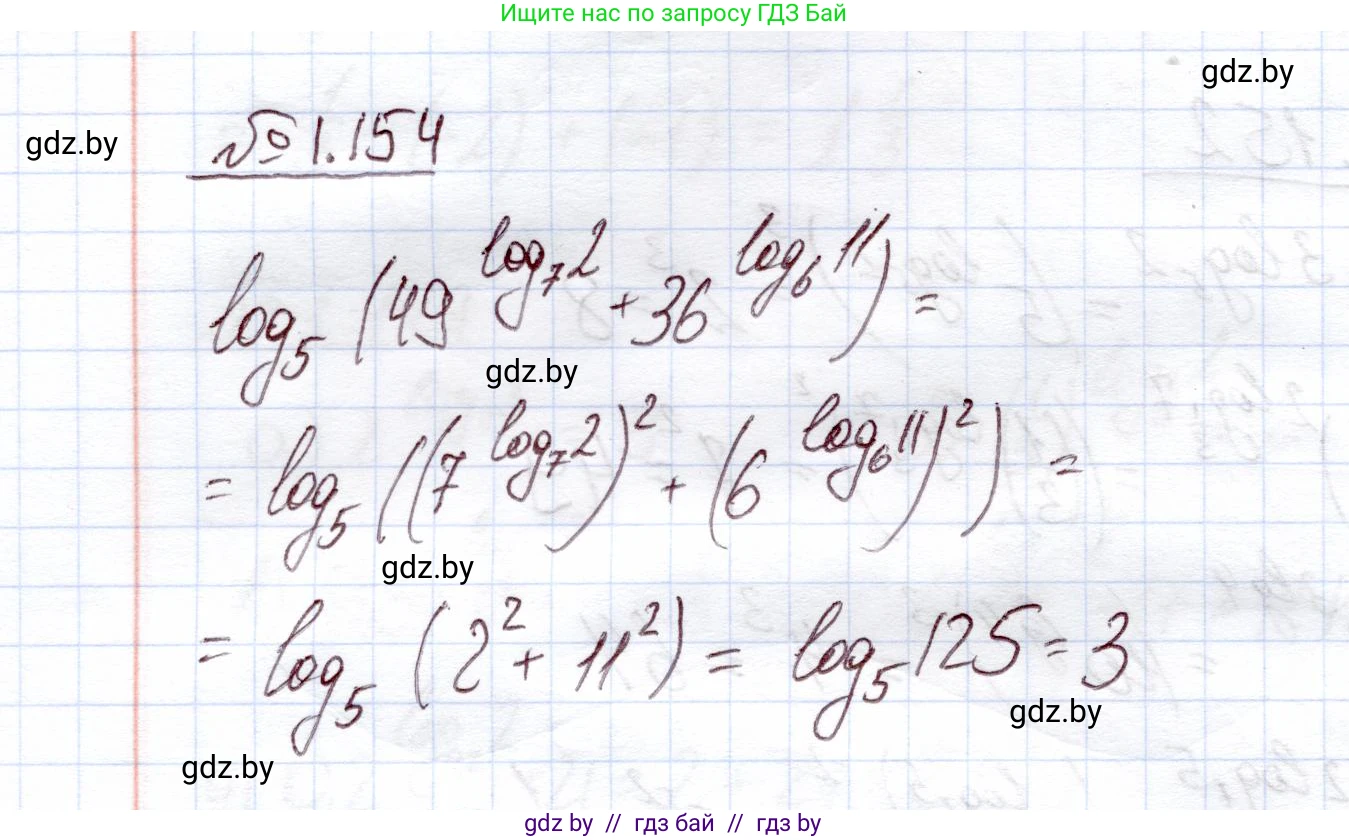 Ищите нас по запросу ГДЗ Бай
gdz.by
gdz.by
№ 1.154
log₅ (49^(log₇ 2) + 36^(log₆ 11)) =
gdz.by
= log₅ ((7^(log₇ 2))² + (6^(log₆ 11))²) =
gdz.by
= log₅ (2² + 11²) = log₅ 125 = 3
gdz.by
gdz.by
gdz by // гдз бай // гдз by